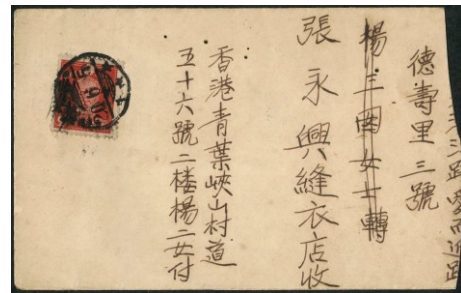 愛而近路
德壽里三號
楊三囡女士轉
張永興縫衣店收
香港青葉峽山村道
五十六號二樓楊二女付